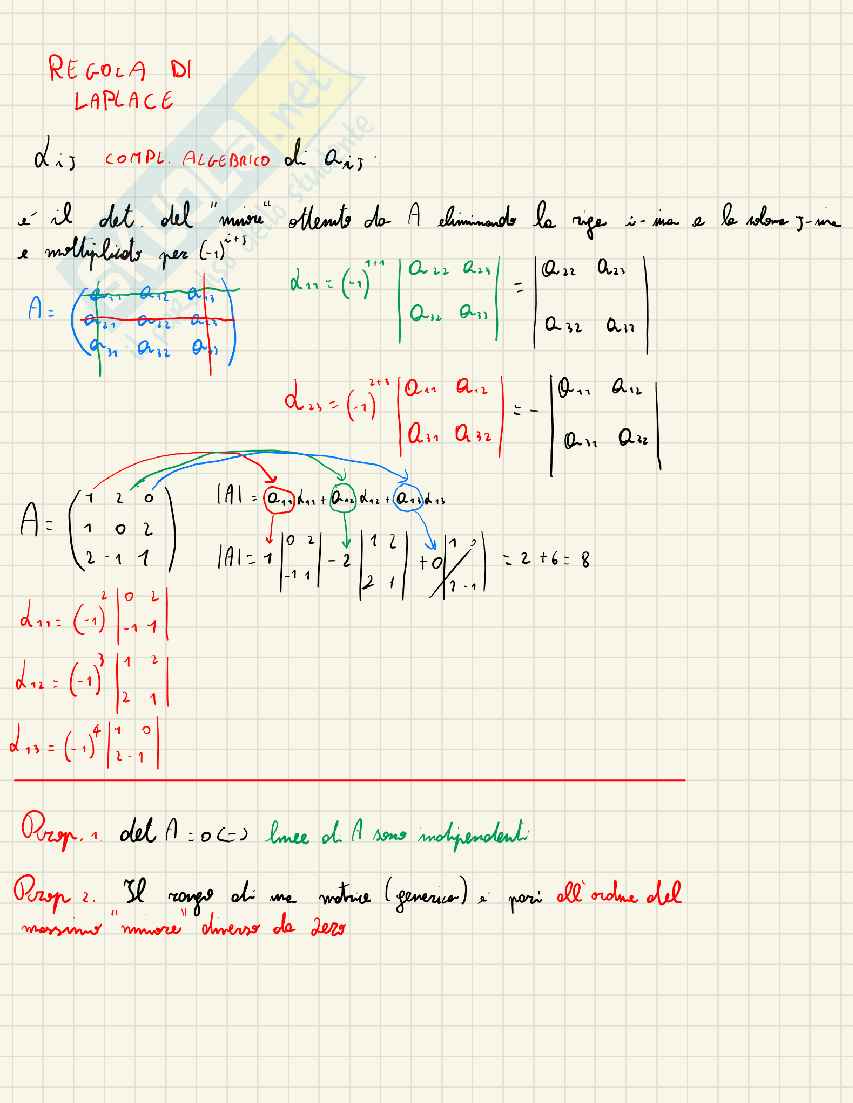 REGOLA DI
LAPLACE
αij COMPL. ALGEBRICO di aij.
è il det. del "minore" ottenuto da A eliminando la riga i-ma e la colonna j-ma
e moltiplicato per (-1)^i+j
A = (a11 a12 a13
a21 a22 a23
a31 a32 a33)
α11 = (-1)^1+1 |a22 a23
a32 a33| = |a22 a23
a32 a33|
α23 = (-1)^2+3 |a11 a12
a31 a32| = - |a11 a12
a31 a32|
A = (1 2 0
1 0 2
2 -1 1)
|A| = a11 α11 + a12 α12 + a13 α13
|A| = 1 |0 2
-1 1| - 2 |1 2
2 1| + 0 |1 0
2 -1| = 2 + 6 = 8
α11 = (-1)^2 |0 2
-1 1|
α12 = (-1)^3 |1 2
2 1|
α13 = (-1)^4 |1 0
2 -1|
Prop. 1. det A = 0 (=) linee di A sono indipendenti
Prop 2. Il rango di una matrice (generica) è pari all'ordine del
massimo "minore" diverso da zero
.net